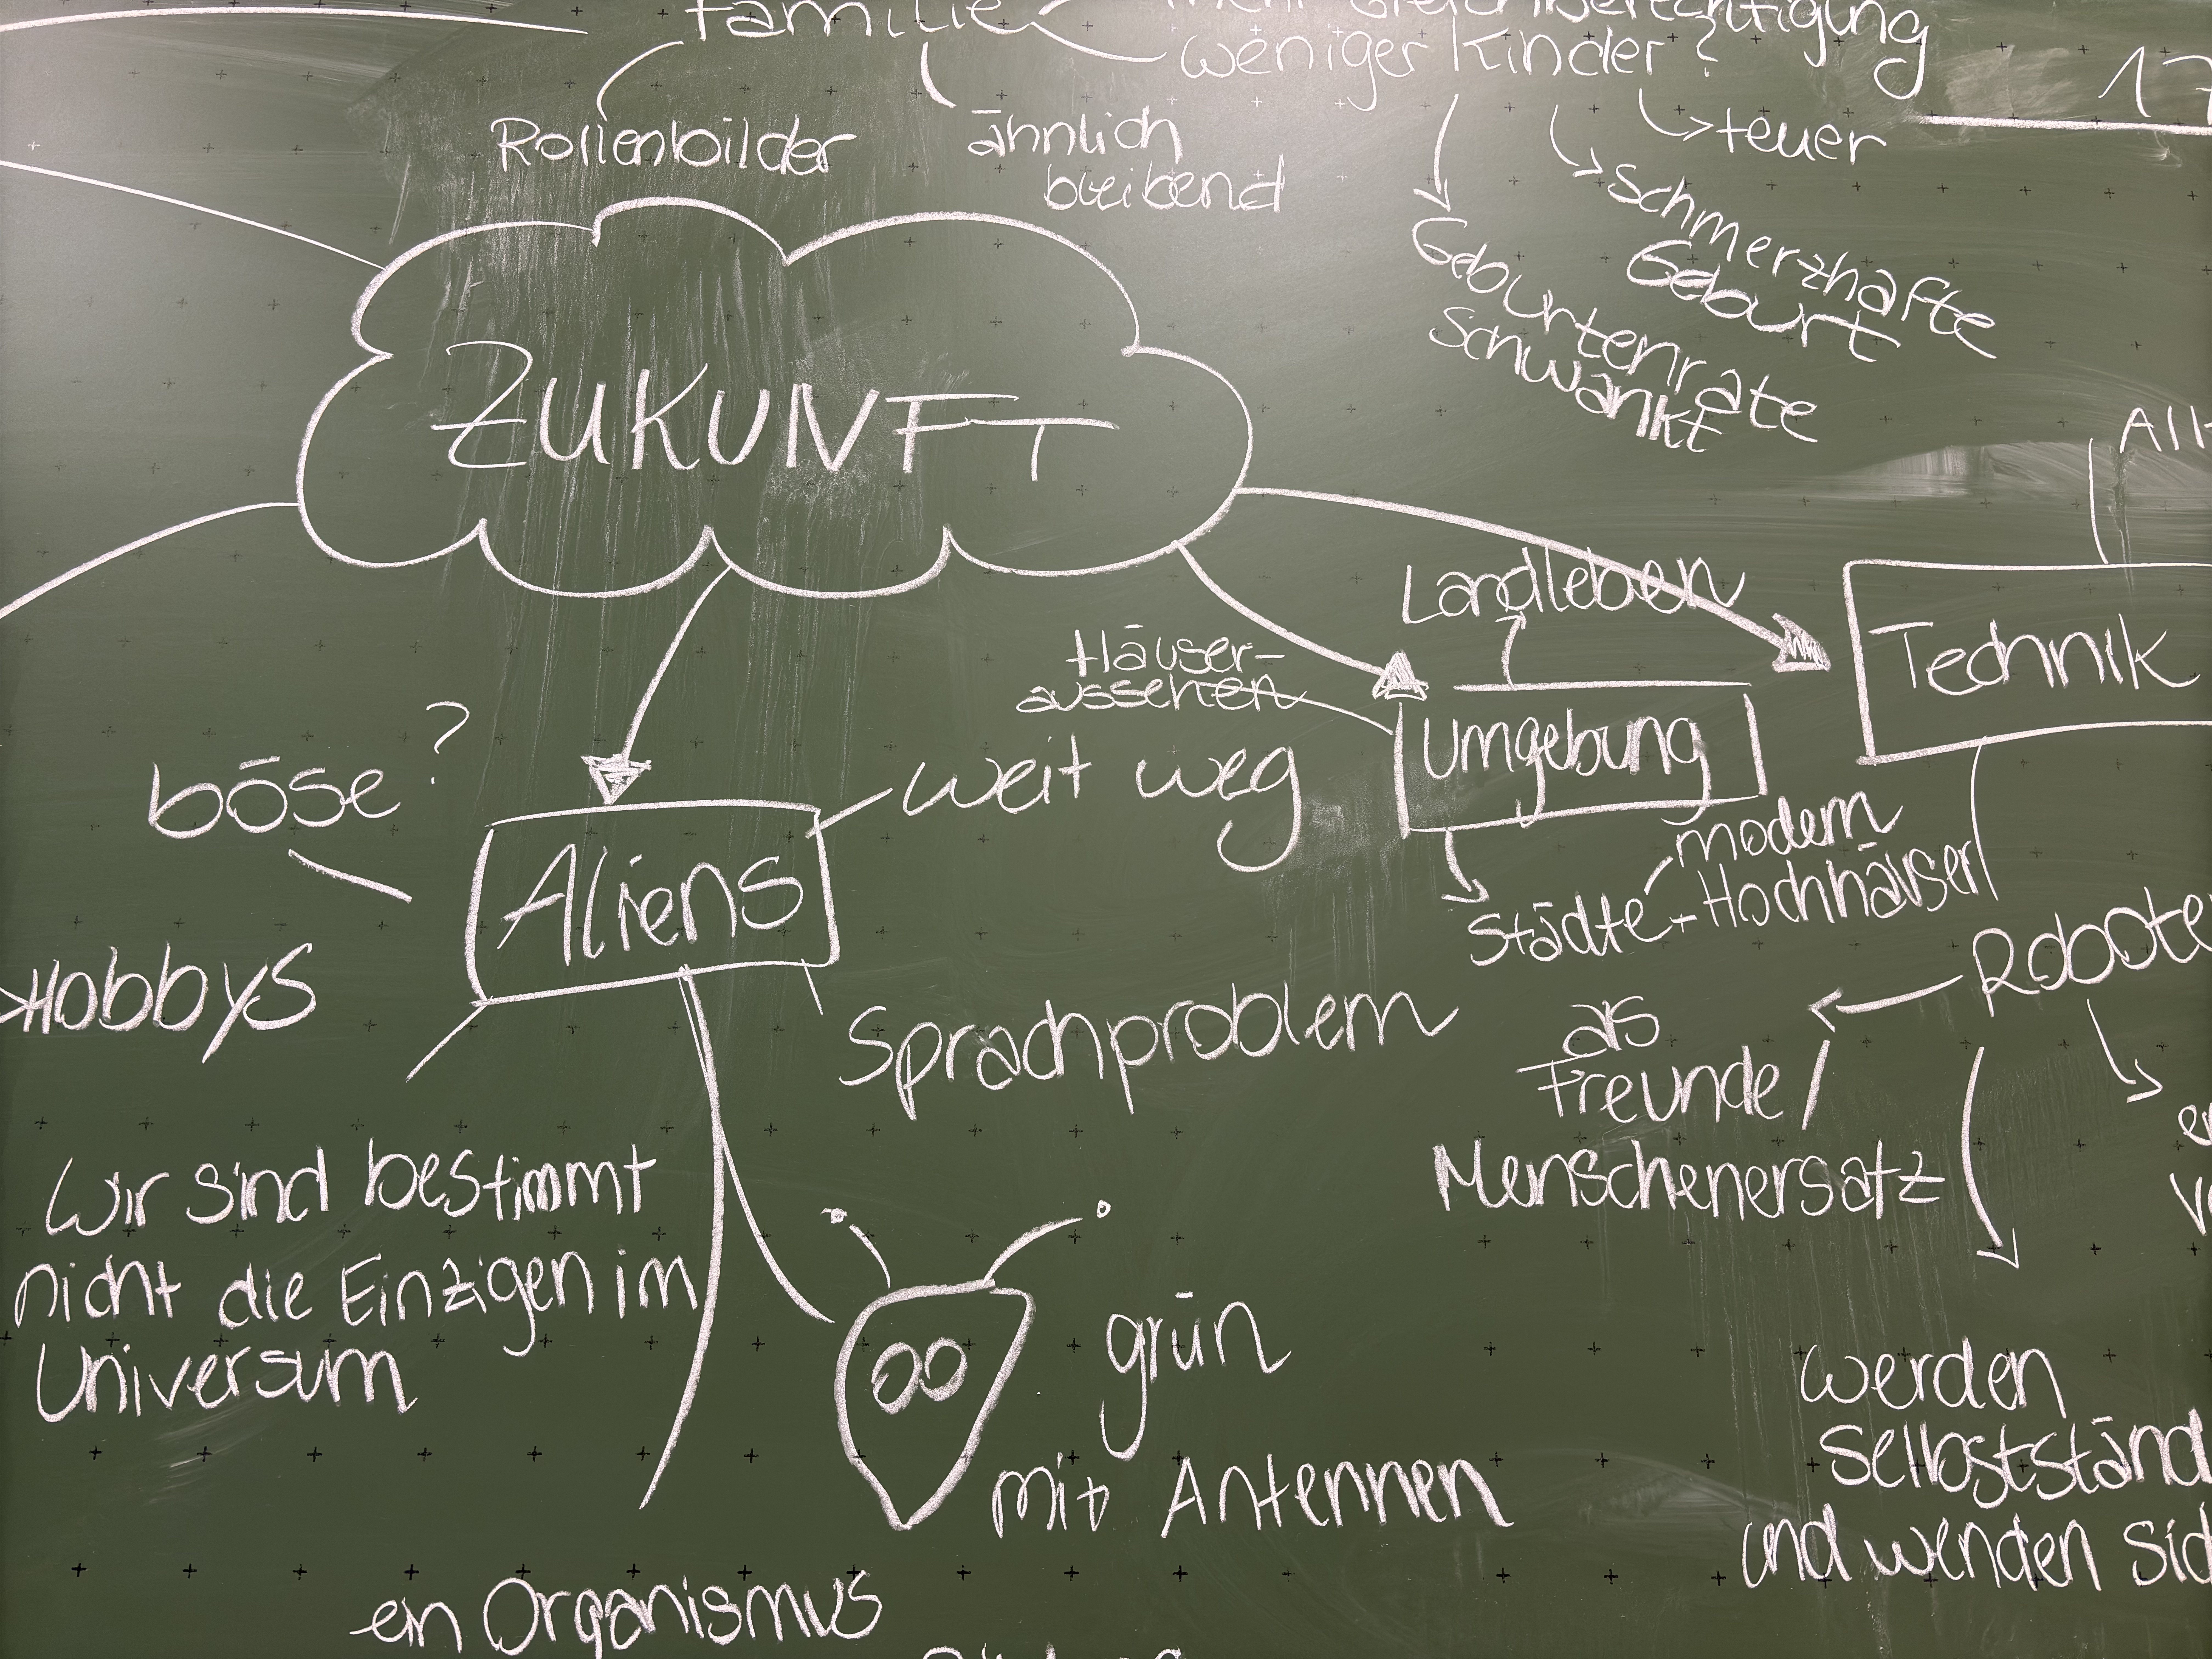 Familie
mehr Gleichberechtigung
weniger Kinder?
17
Rollenbilder
ähnlich
bleibend
teuer
Schmerzhafte
Geburt
Geburtenrate
Schwankt
ZUKUNFT
All
Landleben
Technik
Häuser-
aussehen
Umgebung
böse?
weit weg
Aliens
modern
Städte - Hochhäuser
Hobbys
Robote
Sprachproblem
als
Freunde/
Menschenersatz
Wir sind bestimmt
nicht die Einzigen im
Universum
grün
mit Antennen
werden
Selbstständ
und wenden sic
ein Organismus